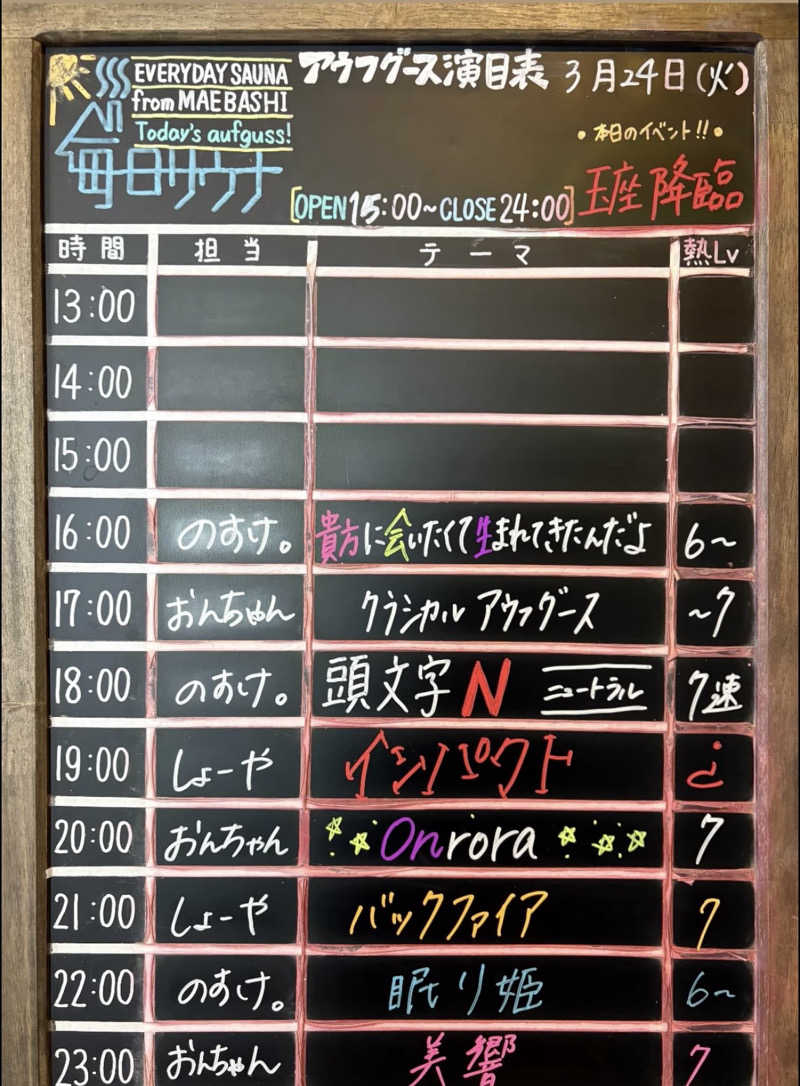 EVERYDAY SAUNA
from MAEBASHI
Today's aufguss!
毎日サウナ
アウフグース演目表 3月24日(火)
•本日のイベント!!•
[OPEN 15:00~CLOSE 24:00] 玉座降臨
時間 担当 テーマ 熱Lv
13:00
14:00
15:00
16:00 のすけ。 貴方に会いたくて生まれてきたんだよ 6~
17:00 おんちゃん クラシカル アウフグース ~7
18:00 のすけ。 頭文字N ニュートラル 7速
19:00 しょーや インパクト
20:00 おんちゃん Onrora 7
21:00 しょーや バックファイア 7
22:00 のすけ。 眠り姫 6~
23:00 おんちゃん 美響 7